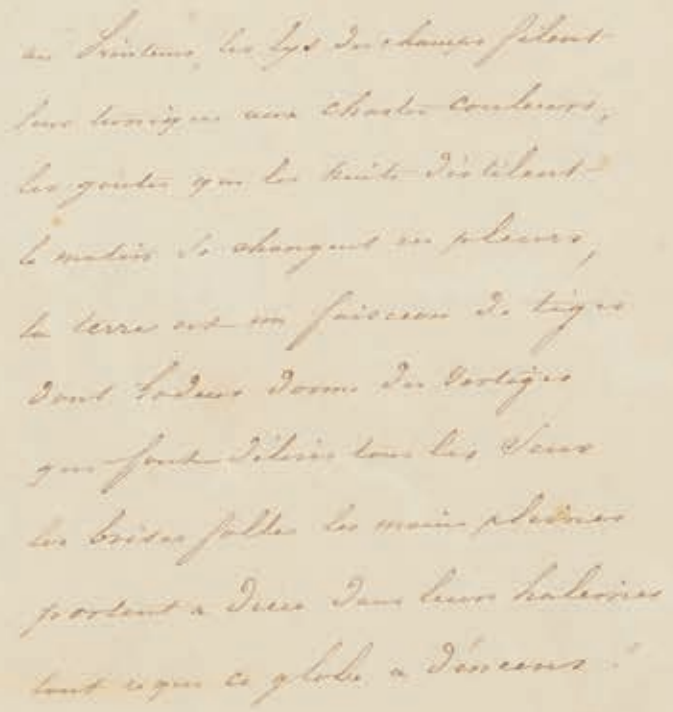 au Printems, les lys des champs filent
leur tunique aux chastes couleurs,
les gouttes que les nuits distilent
le matin se changent en pleurs,
la terre est un faisceau de tiges
dont l'odeur donne des vertiges
qui font délirer tous les sens
les brises folles les mains pleines
portent a dieu dans leurs haleines
tout ce que ce globe a d'encens."